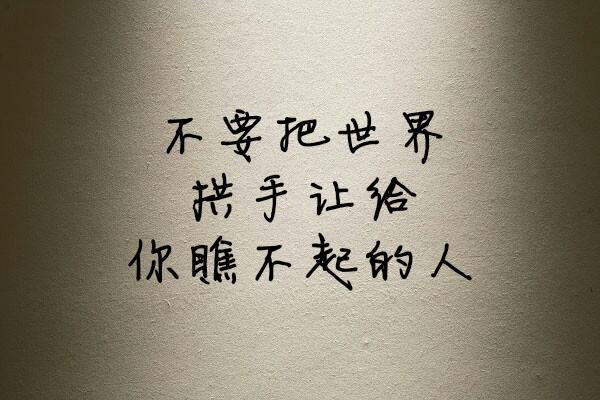 不要把世界
拱手让给
你瞧不起的人